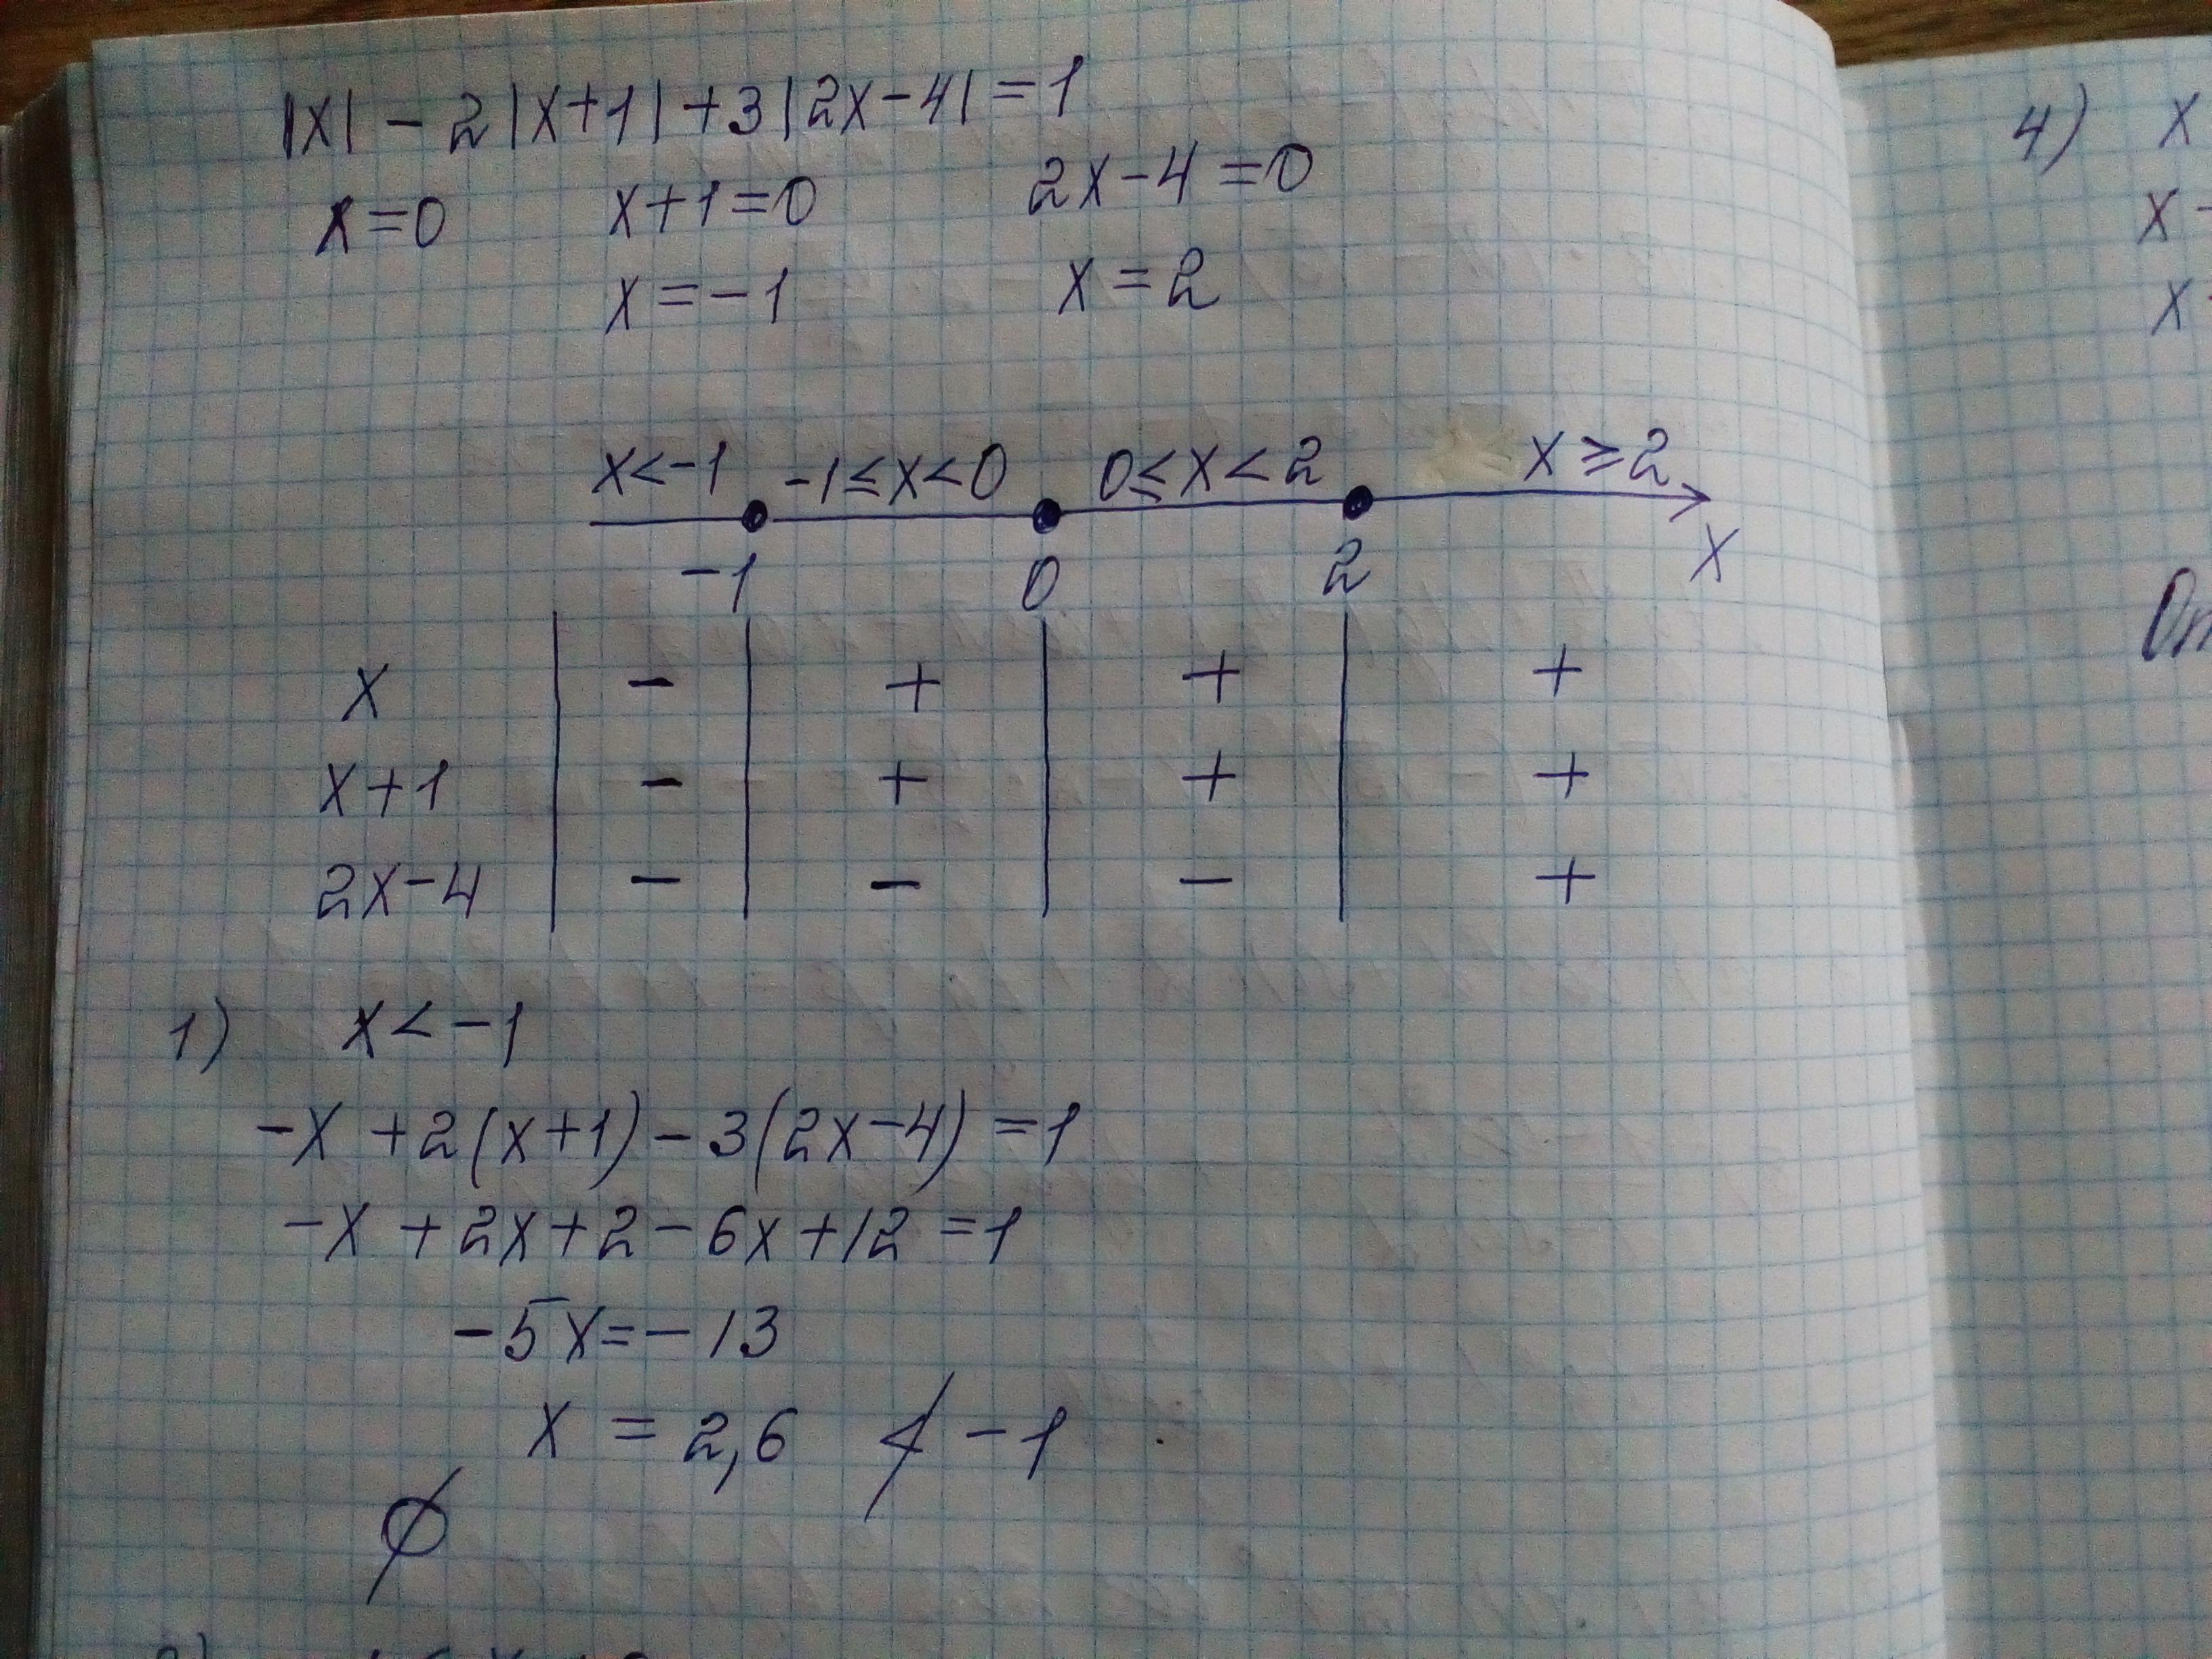 |x| - 2|x+1| + 3|2x-4| = 1
x=0 x+1=0 2x-4=0
x=-1 x=2
x<-1 -1≤x<0 0≤x<2 x≥2
-1 0 2 x
x - + + +
x+1 - + + +
2x-4 - - - +
1) x<-1
-x+2(x+1)-3(2x-4)=1
-x+2x+2-6x+12=1
-5x=-13
x=2,6 ≮ -1
∅
4) x
x-
x